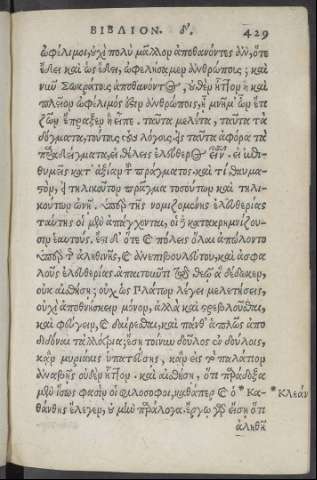 ΒΙΒΛΙΟΝ. δ'. 429
ὠφέλιμοι, οὐχὶ πολὺ μᾶλλον ἀποθανόντες ἂν, ὅτε
ἔδει καὶ ὡς ἔδει, ὠφελήσαμεν ἀνθρώποις; καὶ
νῦν Σωκράτους ἀποθανόντος, οὐθὲν ἧττον ἢ καὶ
πλεῖον ὠφέλιμός ἐστιν ἀνθρώποις, ἡ μνήμη ὧν ἔτι
ζῶν ἔπραξεν ἢ εἶπε. ταῦτα μελέτα, ταῦτα τὰ
δόγματα, τούτους τοὺς λόγους. εἰς ταῦτα ἀφόρα τὰ
παραδείγματα, εἰ θέλεις ἐλεύθερος εἶναι. εἰ ἐπι-
θυμεῖς κατ' ἀξίαν τοῦ πράγματος. καὶ τί θαυμα-
στὸν, εἰ τηλικοῦτον πρᾶγμα τοσούτων καὶ τηλι-
κούτων ὠνῇ. ὑπὲρ τῆς νομιζομένης ἐλευθερίας
ταύτης οἱ μὲν ἀπάγχονται, οἱ δὲ κατακρημνίζου-
σιν ἑαυτούς. ἔστι δ' ὅτε καὶ πόλεις ὅλαι ἀπώλοντο
ὑπὲρ τῆς ἀληθινῆς, καὶ ἀνεπιβουλεύτου, καὶ ἀσφα-
λοῦς ἐλευθερίας. ἀπαιτοῦντι τῷ θεῷ ἃ δέδωκεν,
οὐκ αἰσθήσῃ; οὐχ ὡς Πλάτων λέγει μελετήσεις,
οὐχὶ ἀποθνήσκειν μόνον, ἀλλὰ καὶ στρεβλοῦσθαι,
καὶ φεύγειν, καὶ δαίρεσθαι, καὶ πάνθ' ἁπλῶς ἀπο-
διδόναι τἀλλότρια; ἔσῃ τοίνυν δοῦλος ἐν δούλοις,
κἂν μυριάκις ὑπατεύσῃς, κἂν εἰς τὸ παλάτιον
ἀναβῇς οὐδὲν ἧττον. καὶ αἰσθήσῃ, ὅτι παράδοξα
μὲν ἴσως φασὶν οἱ φιλόσοφοι, καθάπερ καὶ ὁ * Κα- * Κλεάν
θάνθης ἔλεγεν, οὐ μὴν παράλογα. ἔργῳ γὰρ εἴσῃ ὅτι
ἀληθῆ